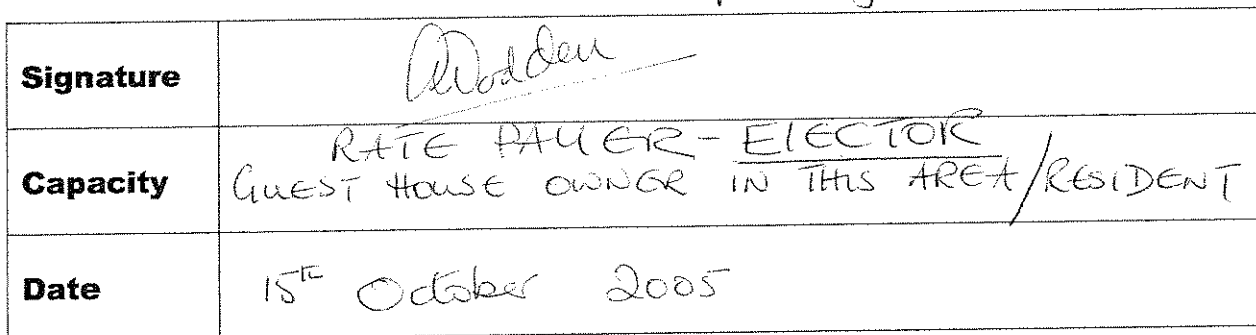 Signature
Capacity RATE PAYER - ELECTOR
GUEST HOUSE OWNER IN THIS AREA/RESIDENT
Date 15th October 2005